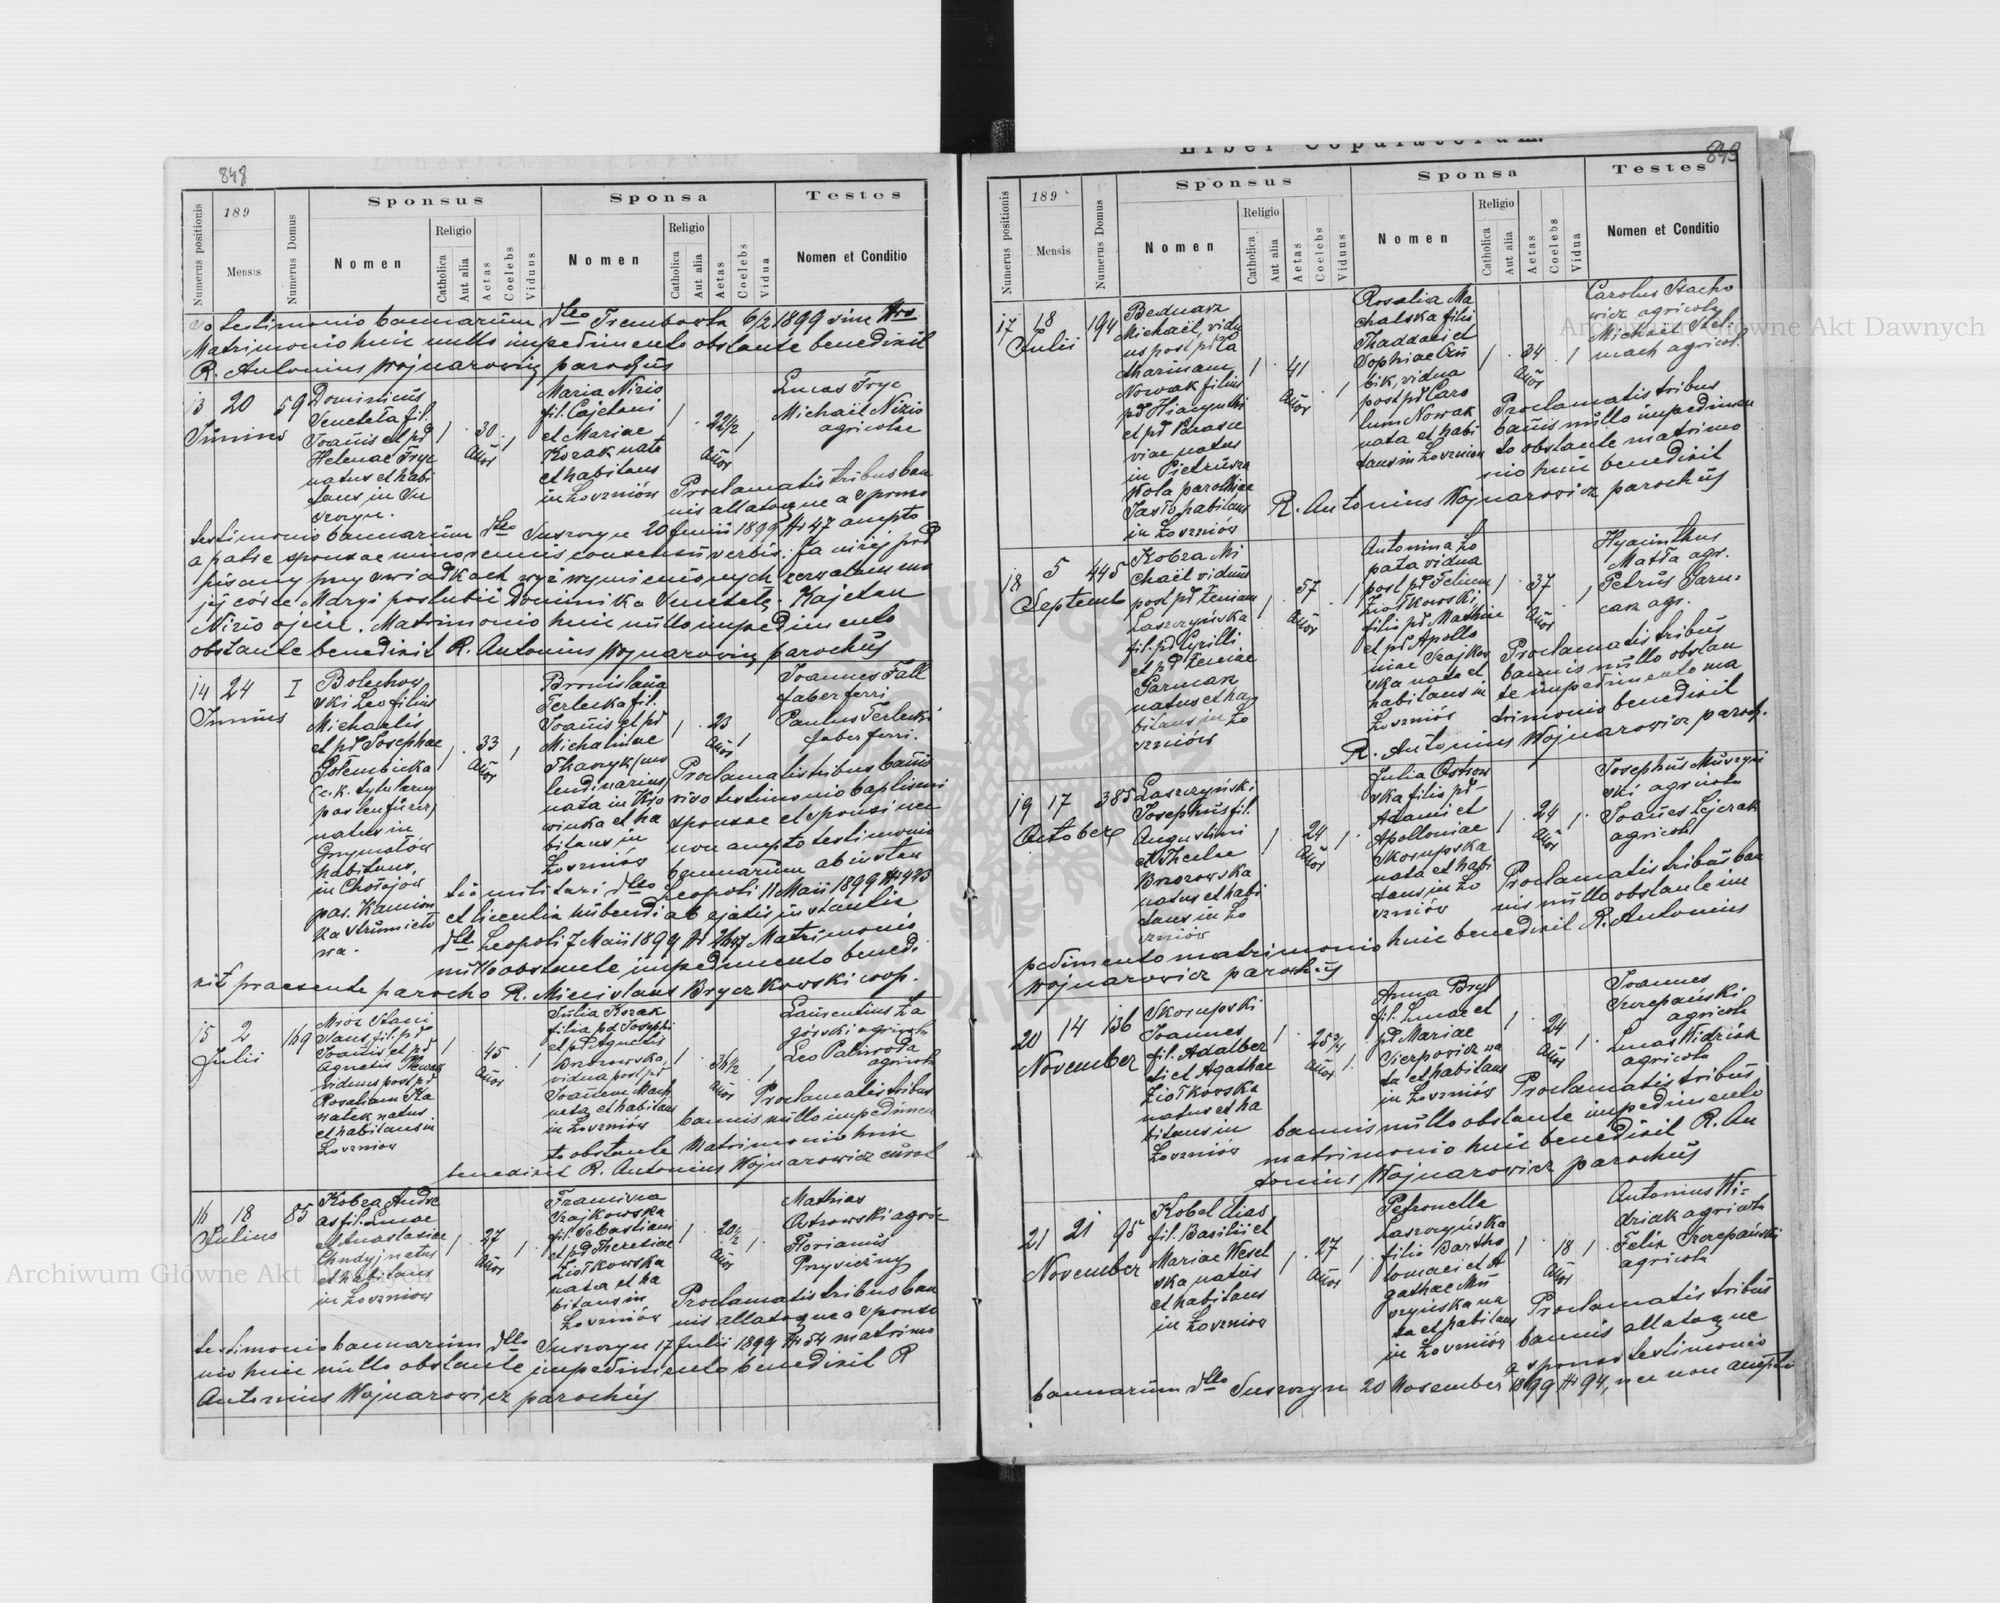 848
Numerus positionis
189
Mensis
Numerus Domus
Sponsus
Nomen
Religio
Catholica
Aut alia
Aetas
Coelebs
Viduus
Sponsa
Nomen
Religio
Catholica
Aut alia
Aetas
Coelebs
Vidua
Testes
Nomen et Conditio
testimonio bannarum dtto Trembowla 6/2 1899 sine Nro
Matrimonio huic nullo impedimento obstante benedixit
R. Antonius Wojnarowicz parochus
13 20 59
Junius
Dominicus
Senetela fil.
Joannis et pd
Helenae Fryc
natus et habi
tans in Su
szczyn.
1 30 1
Annor
Maria Nizio
fil. Cajetani
et Mariae
Kozak nata
et habitans
in Łoszniów
1 22 1/2 1
Annor
Lucas Fryc
Michaël Nizio
agricolae
Proclamatis tribus ban
nis allatoque a sponso
testimonio bannarum dtto Suszczyn 20 Junii 1899 Nr 47 accepto
a patre sponsae minorennis consensu verbis: Ja niżej pod
pisany przy świadkach wyż wymienionych zezwalam mo
jej córce Maryi poślubić Dominika Senetelę. Kajetan
Nizio ojciec. Matrimonio huic nullo impedimento
obstante benedixit R. Antonius Wojnarowicz parochus
14 24 I
Junius
Bolechow
ski Leo filius
Michaelis
et pd Josephae
Gołembicka
(c.k. tytularny
postenführer)
natus in
Grzymałów
habitans,
in Chołojow
par. Kamion
ka strumiło
wa.
1 33 1
Annor
Bronislava
Terlecka fil.
Joannis et pd
Michalinae
Tkaczyk (mo
lendinarius)
nata in Kro
winka et ha
bitans in
Łoszniów
1 23 1
Annor
Joannes Fall
faber ferri
Paulus Terlecki
faber ferri.
Proclamatis tribus bannis
viso testimonio baptismi
sponsae et sponsi nec
non accepto testimonio
bannarum ab instan
tia militari dtto Leopoli 11 Maii 1899 Nr 423
et licentia nubendi ab ejatis instantia
dtto Leopoli 7 Maii 1899 Matrimonio
nullo obstante impedimento benedi
xit praesente parocho R. Miecislaus Bryczkowski coop.
15 2 169
Julii
Mróz Stani
slaus, fil. pd
Joannis et pd
Agnetis Nowak
viduus post pd
Rosaliam Ka
natek natus
et habitans in
Łoszniow
1 45 1
Annor
Julia Kozak
filia pd Josephi
et pd Agnetis
Brzozowska,
vidua post pd
Joannem Mach
nata et habitans
in Łoszniów
1 36 1/2 1
Annor
Laurentius Za
górski agricola
Leo Paliwoda
agricola
Proclamatis tribus
bannis nullo impedimen
to obstante Matrimonio huic
benedixit R. Antonius Wojnarowicz curat
16 18 85
Julius
Kobza Andre
as fil. Lucae
et Anastasiae
Chudyj natus
et habitans
in Łoszniow
1 27 1
Annor
Francisca
Czajkowska
fil. Sebastiani
et pd Theresiae
Ziołkowska
nata et ha
bitans in
Łoszniów
1 20 1/2 1
Annor
Mathias
Ostrowski agric
Florianus
Proclamatis tribus ban
nis allatoque a sponso
testimonio bannarum dtto Suszczyn 17 Julii 1899 Nr 54 matrimo
nio huic nullo obstante impedimento benedixit R
Antonius Wojnarowicz parochus
Liber Copulatorum.
849
Numerus positionis
189
Mensis
Numerus Domus
Sponsus
Nomen
Religio
Catholica
Aut alia
Aetas
Coelebs
Viduus
Sponsa
Nomen
Religio
Catholica
Aut alia
Aetas
Coelebs
Vidua
Testes
Nomen et Conditio
17 18 194
Julii
Bednarz
Michaël, vidu
us post pd Ca
tharinam
Nowak filius
pd Hiacynthi
et pd Parasce
viae natus
in Pietrusza
Wola parochiae
Jasło, habitans
in Łoszniów
1 41 1
Annor
Rosalia Ma
chalska filia
Thaddaei et
Sophiae
bik, vidua
post pd Caro
lum Nowak
nata et habi
tans in Łoszniow
1 34 1
Annor
Carolus Stacho
wicz agricola
Michael Stel
mach agricol.
Proclamatis tribus
bannis nullo impedimen
to obstante matrimo
nio huic benedixit
R. Antonius Wojnarowicz parochus
18 5 445
Septemb
Kobza Mi
chaël viduus
post pd Xeniam
Laszczyńska
fil. pd Cyrilli
et pd Xeniae
Garmak
natus et ha
bitans in Ło
szniów
1 57 1
Annor
Antonina Ło
pata vidua
post pd Felicem
Ziołkowski,
filia pd Mathiae
et pd Apollo
niae Czajkow
ska nata et
habitans in
Łoszniów
1 37 1
Annor
Hyacinthus
Matła agr.
Petrus Garn=
carz agr.
Proclamatis tribus
bannis nullo obstan
te impedimento ma
trimonio benedixit
R. Antonius Wojnarowicz paroch.
19 17 385
October
Laszczyński
Josephus fil.
Augustini
et Theclae
Brzozowska
natus et habi
tans in Ło
szniów
1 24 1
Annor
Julia Ostrow
ska filia pd
Adami et
Apolloniae
Skorupska
nata et habi
tans in Ło
szniów
1 24 1
Annor
Josephus Muszyń
ski agricola
Joannes Lejczak
agricola
Proclamatis tribus ban
nis nullo obstante im
pedimento matrimonio huic benedixit R. Antonius
Wojnarowicz parochus
20 14 136
November
Skorupski
Joannes
fil. Adalber
ti et Agathae
Ziołkowska
natus et ha
bitans in
Łoszniów
1 25 3/4 1
Annor
Anna Bryl
fil. Lucae et
pd Mariae
Sierpowicz na
ta et habitans
in Łoszniów
1 24 1
Annor
Joannes
Szczepański
agricola
Lucas Widziak
agricola
Proclamatis tribus
bannis nullo obstante impedimento
matrimonio huic benedixit R. An
tonius Wojnarowicz parochus
21 21 95
November
Kobel Elias
fil. Basilii et
Mariae Wesel
ska natus
et habitans
in Łoszniow
1 27 1
Annor
Petronella
Laszczyńska
filia Bartho
lomaei et A
gathae Mu
szyńska na
ta et habitans
in Łoszniów
1 18 1
Annor
Antonius Wi=
dziak agricola
Felix Szczepański
agricola
Proclamatis tribus
bannis allatoque
a sponso testimonio
bannarum dtto Suszczyn 20 November 1899 Nr 94, nec non accepto
Archiwum Główne Akt Dawnych
Archiwum Główne Akt Dawnych